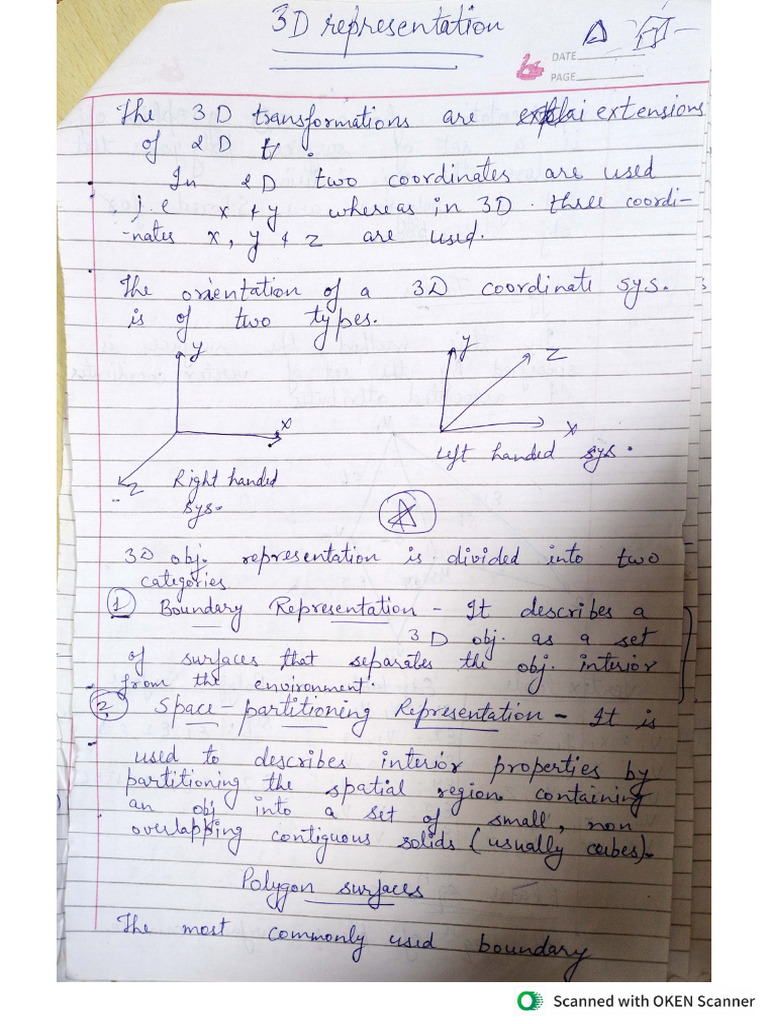 3D representation
DATE
PAGE
The 3D transformations are extensions
of 2D t/.
In 2D two coordinates are used
i.e x & y whereas in 3D. three coordi-
-nates x, y & z are used.
The orientation of a 3D coordinate sys.
is of two types.
y
x
z
Right handed
sys.
y
z
x
Left handed sys.
A
3D obj. representation is divided into two
categories
1 Boundary Representation - It describes a
3D obj. as a set
of surfaces that separates the obj. interior
from the environment.
2. Space-partitioning Representation - It is
used to describes interior properties by
partitioning the spatial region containing
an obj into a set of small, non
overlapping contiguous solids (usually cubes).
Polygon surfaces
The most commonly used boundary
Scanned with OKEN Scanner